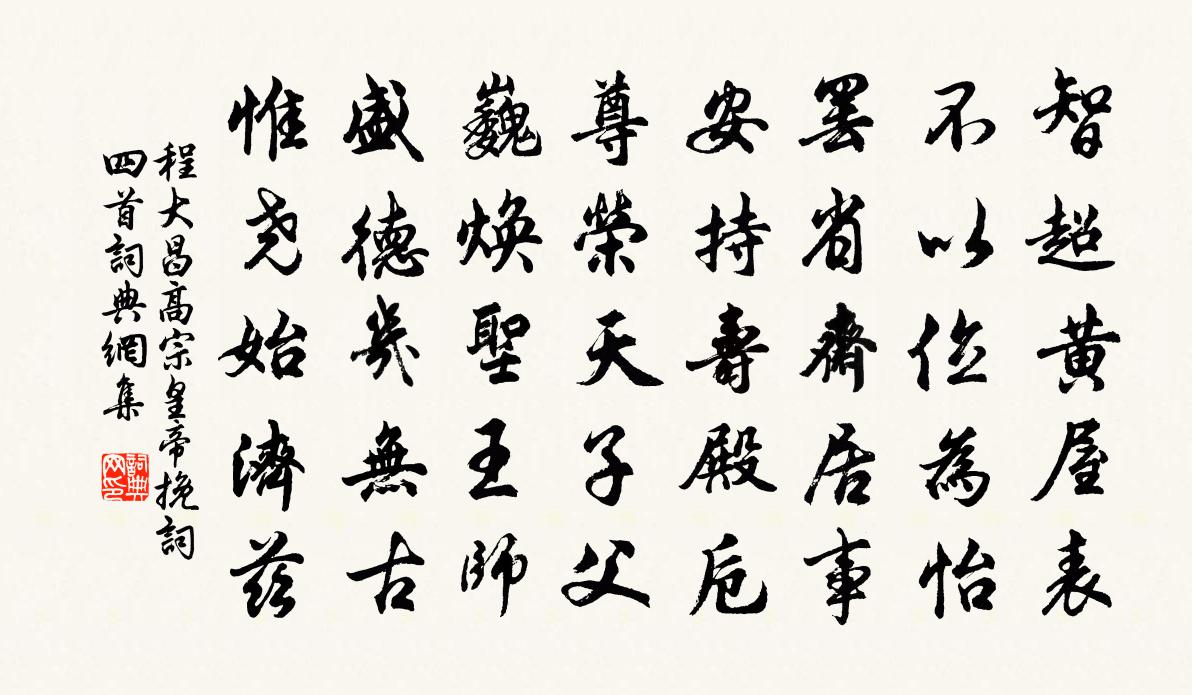 智超黄屋表
不以位為怡
罢省齋居事
安持壽殿卮
尊榮天子父
巍焕聖王師
盛德幾無古
惟尧始濟兹
程大昌高宗皇帝挽詞
四首詞典網集
詞典
网印